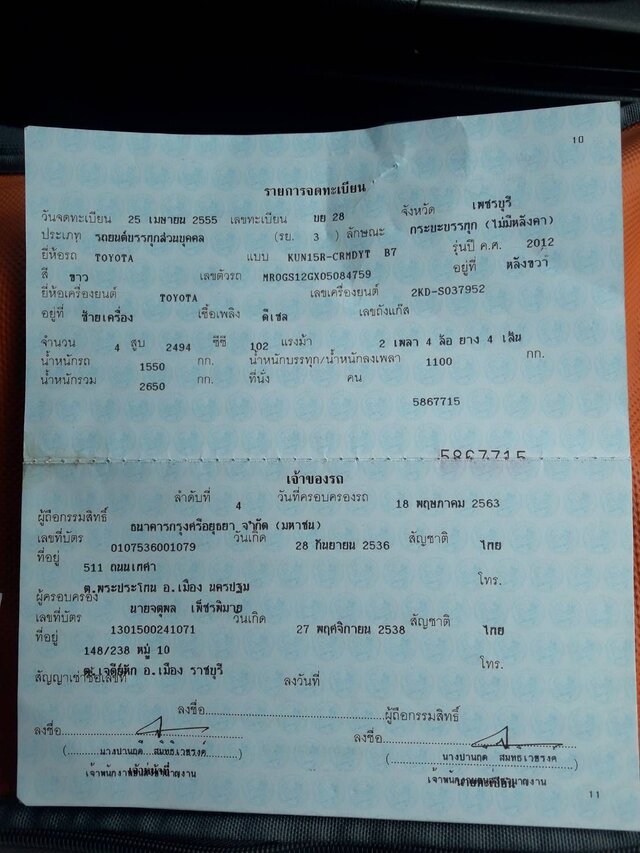 10
รายการจดทะเบียน
วันจดทะเบียน 25 เมษายน 2555 เลขทะเบียน บย 28 จังหวัด เพชรบุรี
ประเภท รถยนต์บรรทุกส่วนบุคคล (รย. 3 ) ลักษณะ กระบะบรรทุก (ไม่มีหลังคา)
ยี่ห้อรถ TOYOTA แบบ KUN15R-CRMDYT B7 รุ่นปี ค.ศ. 2012
สี ขาว เลขตัวรถ MROGS12GX05084759 อยู่ที่ หลังขวา
ยี่ห้อเครื่องยนต์ TOYOTA เลขเครื่องยนต์ 2KD-S037952
อยู่ที่ ซ้ายเครื่อง เชื้อเพลิง ดีเซล เลขถังแก๊ส
จำนวน 4 สูบ 2494 ซีซี 102 แรงม้า 2 เพลา 4 ล้อ ยาง 4 เส้น
น้ำหนักรถ 1550 กก. น้ำหนักบรรทุก/น้ำหนักลงเพลา 1100 กก.
น้ำหนักรวม 2650 กก. ที่นั่ง คน
5867715
5867715
เจ้าของรถ
ลำดับที่ 4 วันที่ครอบครองรถ 18 พฤษภาคม 2563
ผู้ถือกรรมสิทธิ์ ธนาคารกรุงศรีอยุธยา จำกัด (มหาชน)
เลขที่บัตร 0107536001079 วันเกิด 28 กันยายน 2536 สัญชาติ ไทย
ที่อยู่ 511 ถนนเทศา โทร.
ต.พระประโทน อ.เมือง นครปฐม
ผู้ครอบครอง นายจตุพล เพ็ชรพิมาย
เลขที่บัตร 1301500241071 วันเกิด 27 พฤศจิกายน 2538 สัญชาติ ไทย
ที่อยู่ 148/238 หมู่ 10 โทร.
ต.เจดีย์หัก อ.เมือง ราชบุรี
สัญญาเช่าซื้อเลขที่ ลงวันที่
ลงชื่อ ผู้ถือกรรมสิทธิ์
ลงชื่อ ลงชื่อ
11